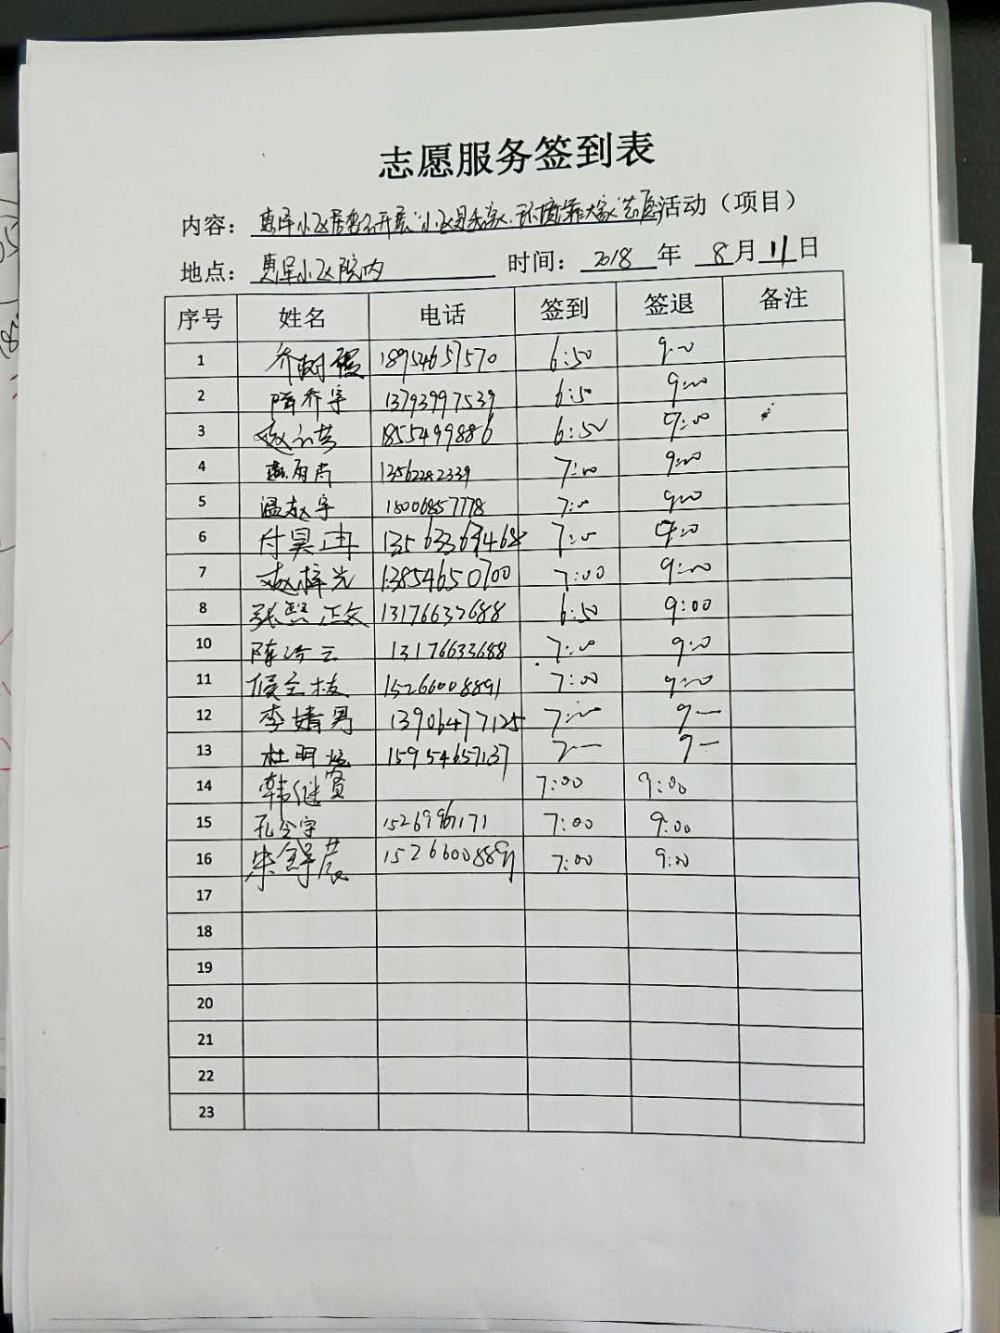 志愿服务签到表
内容：惠军小区居委会开展"小区是我家、环境靠大家"志愿活动（项目）
地点：惠军小区院内 时间：2018年8月11日
序号 姓名 电话 签到 签退 备注
1 乔树 18954657570 6:50 9:00
2 隋乔宇 13793997539 6:50 9:00
3 赵 1855499886 6:50 9:00
4 13562282339 7:00 9:00
5 温 18006857778 7:00 9:00
6 付昊冉 13563369468 7:00 9:00
7 赵梓光 13854650700 7:00 9:00
8 张熙正文 13176632688 6:50 9:00
10 陈 13176633688 7:00 9:00
11 侯 15266008891 7:00 9:00
12 李婧男 13906477125 7:00 9—
13 杜明 15954657137 7— 9—
14 韩继贤 7:00 9:00
15 孔令宇 1526996171 7:00 9:00
16 宋锌蕽 15266008891 7:00 9:00
17
18
19
20
21
22
23